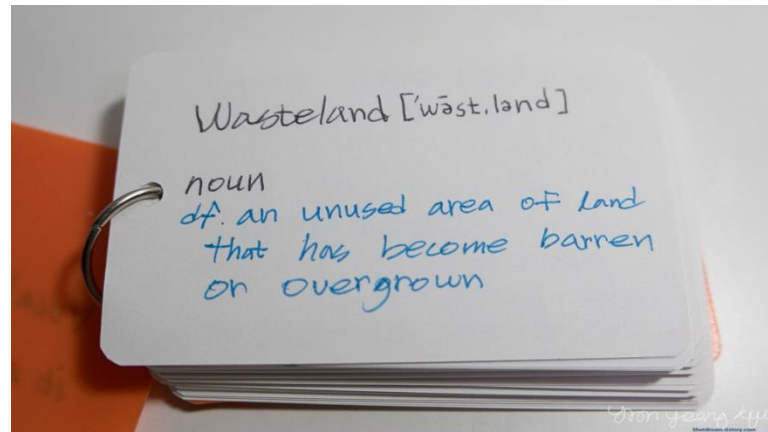 Wasteland ['wāst,land]
noun
df. an unused area of land
that has become barren
or overgrown